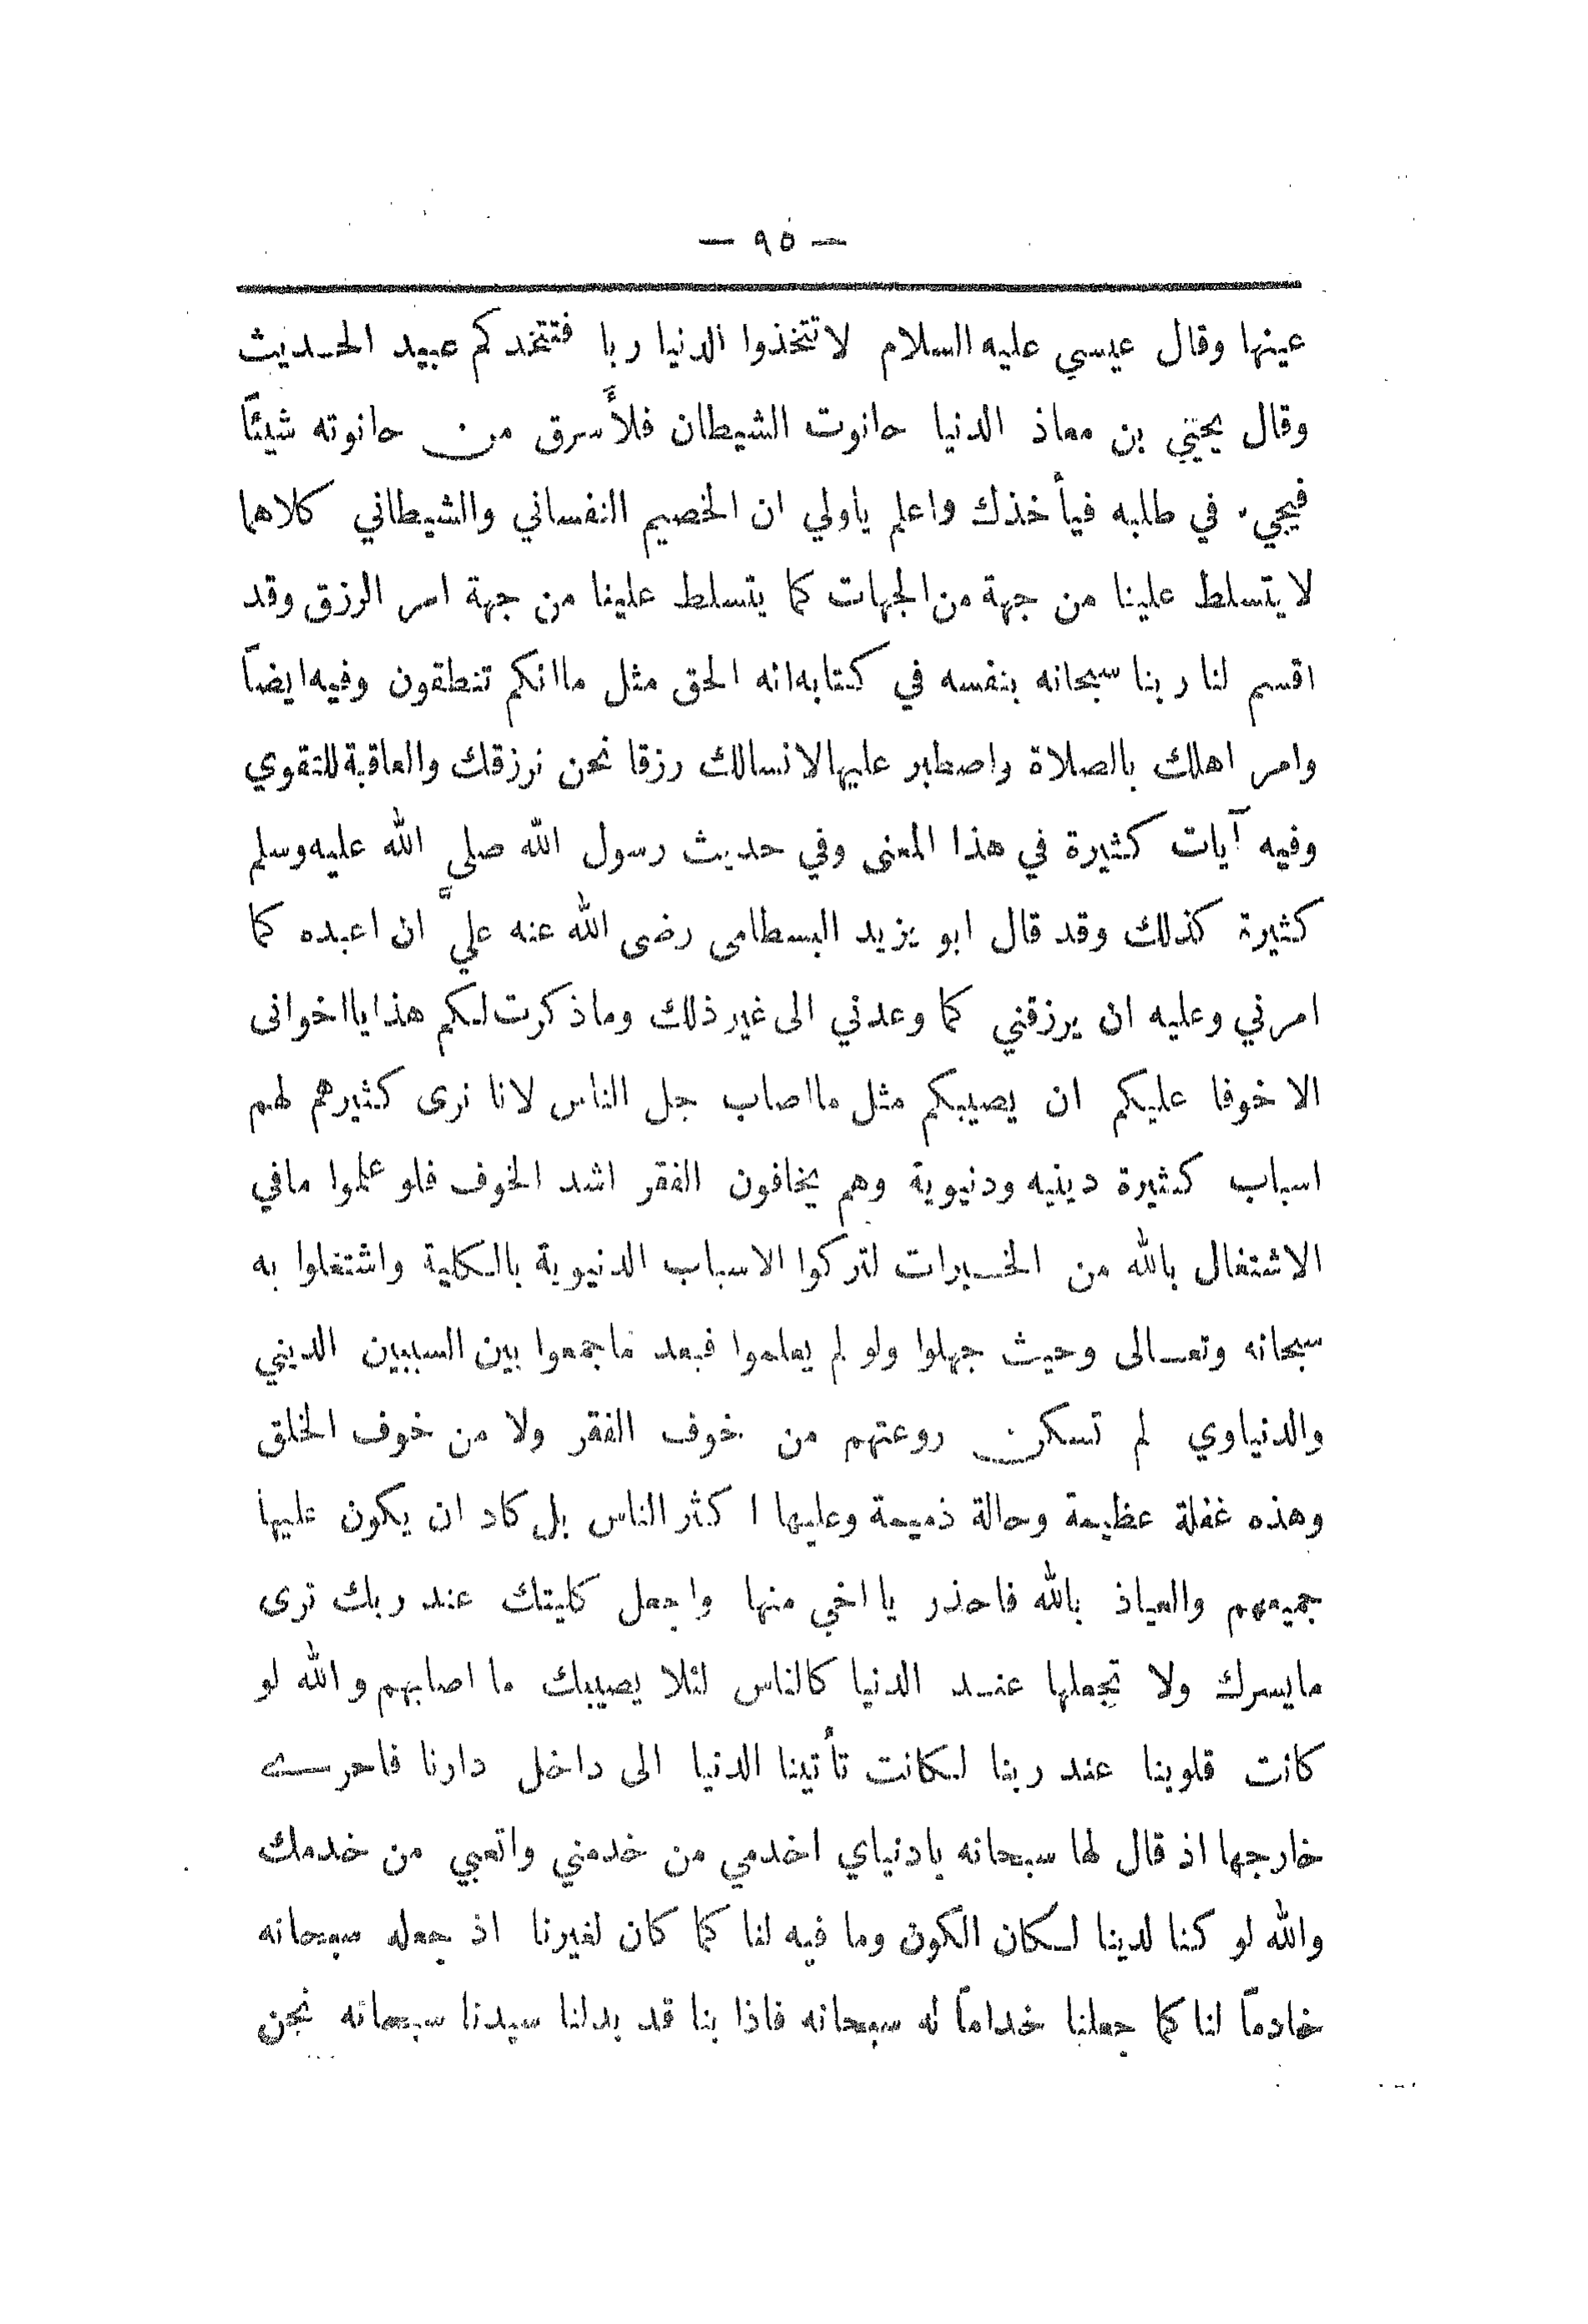 — ٩٥ —
عينها وقال عيسي عليه السلام لاتتخذوا الدنيا ربا فتتخدكم عبيد الحديث
وقال يحيي بن معاذ الدنيا حانوت الشيطان فلأسرق من حانوته شيئاً
فيجيء في طلبه فيأخذك واعلم ياولي ان الخصيم النفساني والشيطاني كلاهما
لايتسلط علينا من جهة من الجهات كما يتسلط علينا من جهة امر الرزق وقد
اقسم لنا ربنا سبحانه بنفسه في كتابه انه الحق مثل ماانكم تنطقون وفيه ايضاً
وامر اهلك بالصلاة واصطبر عليها لانسالك رزقا نحن نرزقك والعاقبة للتقوي
وفيه آيات كثيرة في هذا المعنى وفي حديث رسول الله صلى الله عليه وسلم
كثيرة كذلك وقد قال ابو يزيد البسطامى رضى الله عنه عليَّ ان اعبده كما
امرني وعليه ان يرزقني كما وعدني الى غير ذلك وماذكرت لكم هذا يااخوانى
الا خوفا عليكم ان يصيبكم مثل مااصاب جل الناس لانا نرى كثيرهم لهم
اسباب كثيرة دينيه ودنيوية وهم يخافون الفقر اشد الخوف فلو علموا مافي
الاشتغال بالله من الخيرات لتركوا الاسباب الدنيوية بالكلية واشتغلوا به
سبحانه وتعالى وحيث جهلوا ولو لم يعلموا فبعد ماجمعوا بين السببين الديني
والدنياوي لم تسكن روعتهم من خوف الفقر ولا من خوف الخلق
وهذه غفلة عظيمة وحالة ذميمة وعليها اكثر الناس بل كاد ان يكون عليها
جميعهم والعياذ بالله فاحذر يا اخي منها واجعل كليتك عند ربك ترى
مايسرك ولا تجعلها عند الدنيا كالناس لئلا يصيبك ما اصابهم والله لو
كانت قلوبنا عند ربنا لكانت تأتينا الدنيا الى داخل دارنا فاحرى
خارجها اذ قال لها سبحانه يادنياي اخدمي من خدمني واتعبي من خدمك
والله لو كنا لدينا لكان الكون وما فيه لنا كما كان لغيرنا اذ جعله سبحانه
خادماً لنا كما جعلنا خداماً له سبحانه فاذا بنا قد بدلنا سيدنا سبحانه نحن